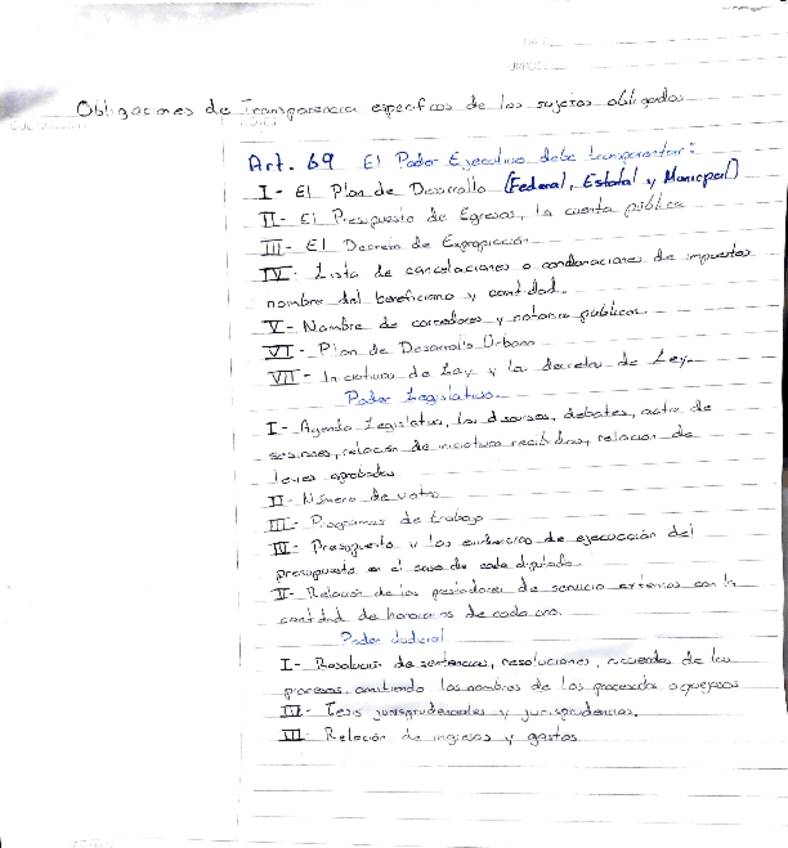 Obligaciones de Transparencia especificas de los sujetos obligados
Art. 69 El Poder Ejecutivo debe transparentar:
I- El Plan de Desarrollo (Federal, Estatal y Municpal)
II- El Presupuesto de Egresos, la cuenta pública
III- El Decreto de Expropiación
IV- Lista de cancelaciones o condonaciones de impuestos
nombre del beneficiario y cantidad.
V- Nombre de corredores y notarios públicos.
VI- Plan de Desarrollo Urbano
VII- Iniciativas de Ley y los decretos de Ley.
Poder Legislativo.
I- Agenda Legislativa, los discursos, debates, acta de
sesiones, relación de iniciativas recibidas, relación de
leyes aprobadas
II- Número de votos
III- Programas de trabajo
IV- Presupuesto y las evidencias de ejecucción del
presupuesto en el caso de cada diputado.
II- Relación de los prestadores de servicio externos con la
cantidad de honorarios de cada uno.
Poder Judicial
I- Resolución de sentencias, resoluciones, acuerdos de los
procesos, omitiendo los nombres de los procesados o quejosos
III- Tesis jurisprudenciales y jurisprudencias.
III- Relación de ingresos y gastos